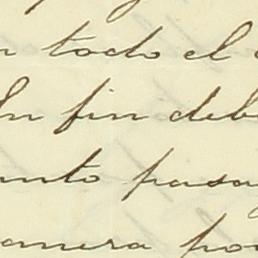 n todo el
In fin deb
unto pasa
anera po